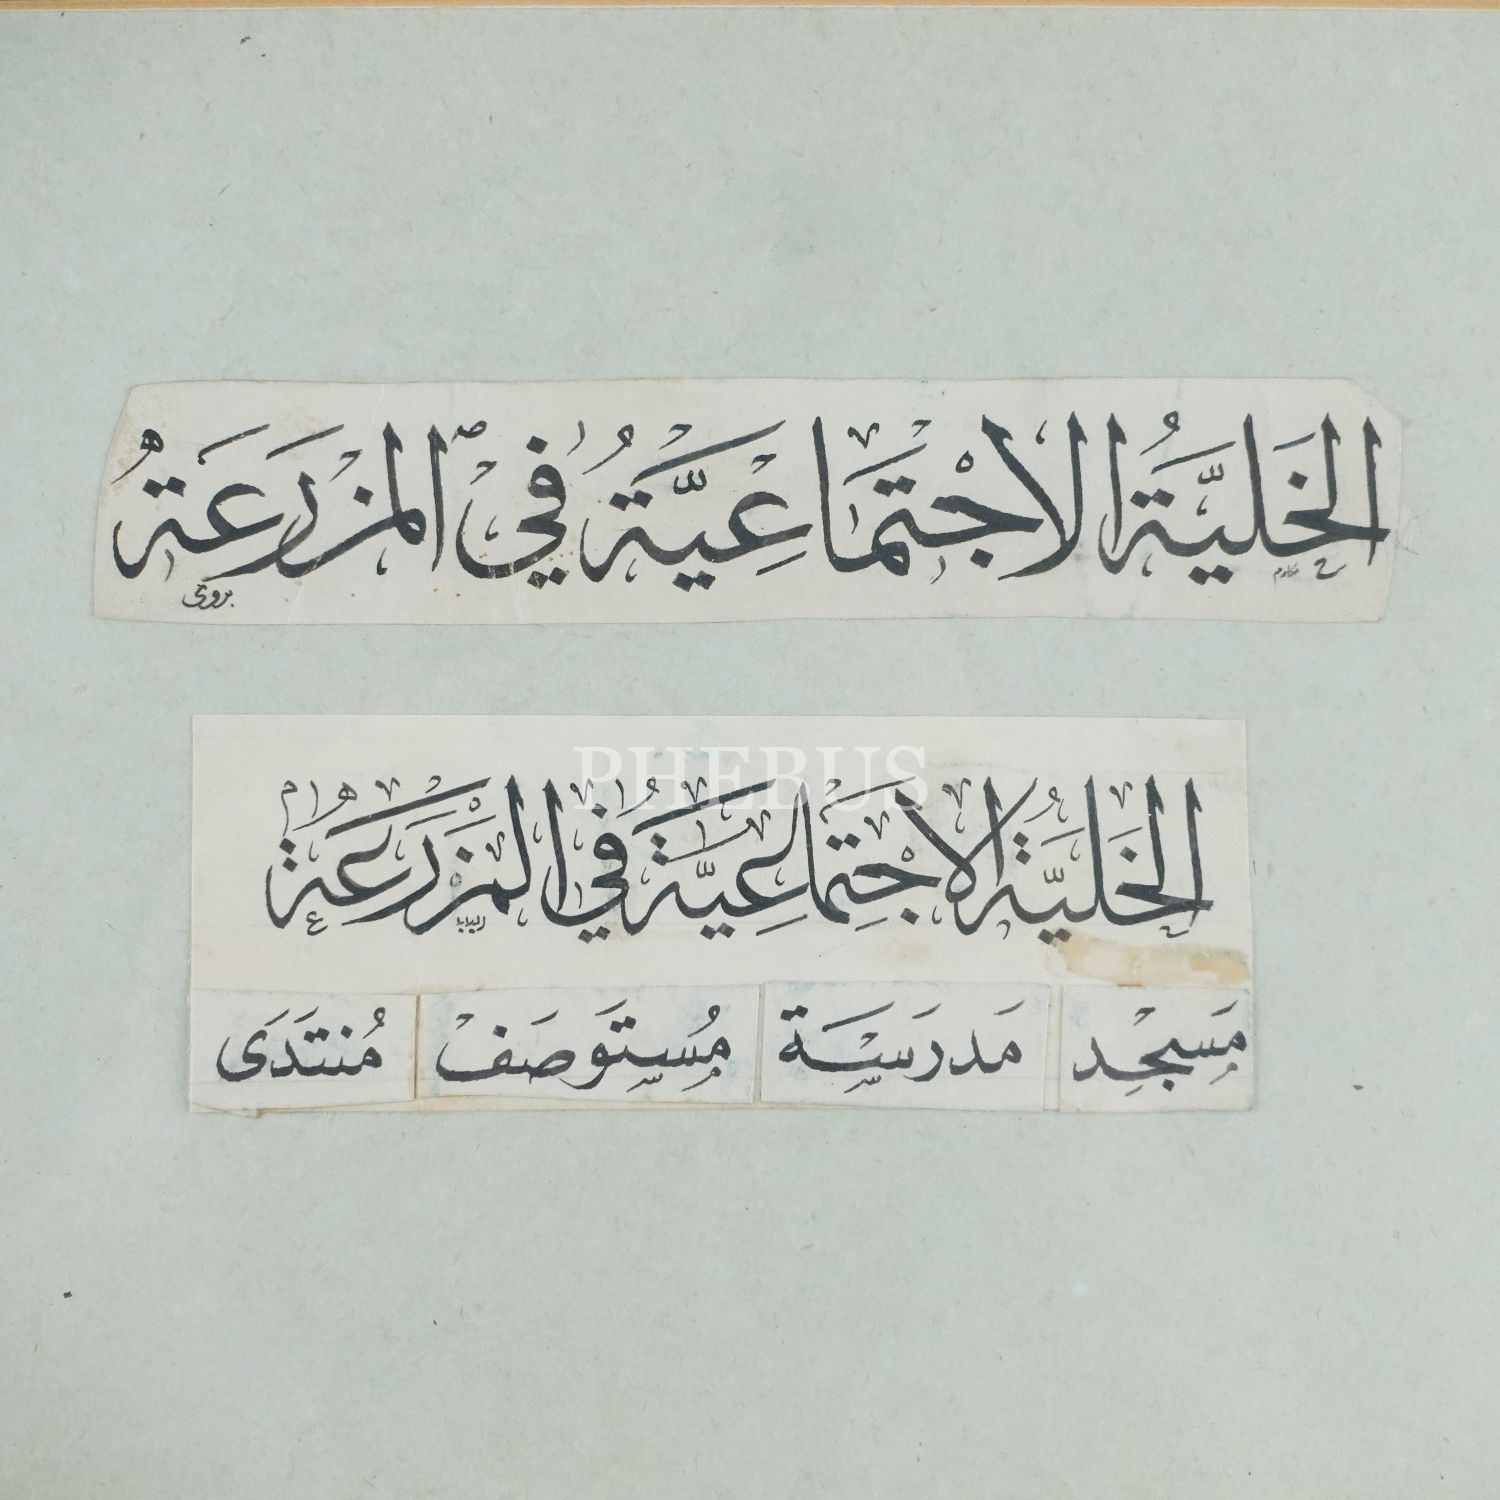 الخَلِيَّةُ الاجْتِمَاعِيَّةُ فِي المَزْرَعَةُ
PHEBUS
الخَلِيَّةُ الاجْتِمَاعِيَّةُ فِي المَزْرَعَةُ
مَسْجِد مَدرَسَة مُستَوصَفْ مُنتَدَى